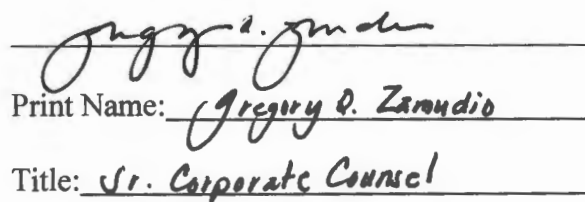 Print Name: Gregory D. Zamudio
Title: Sr. Corporate Counsel